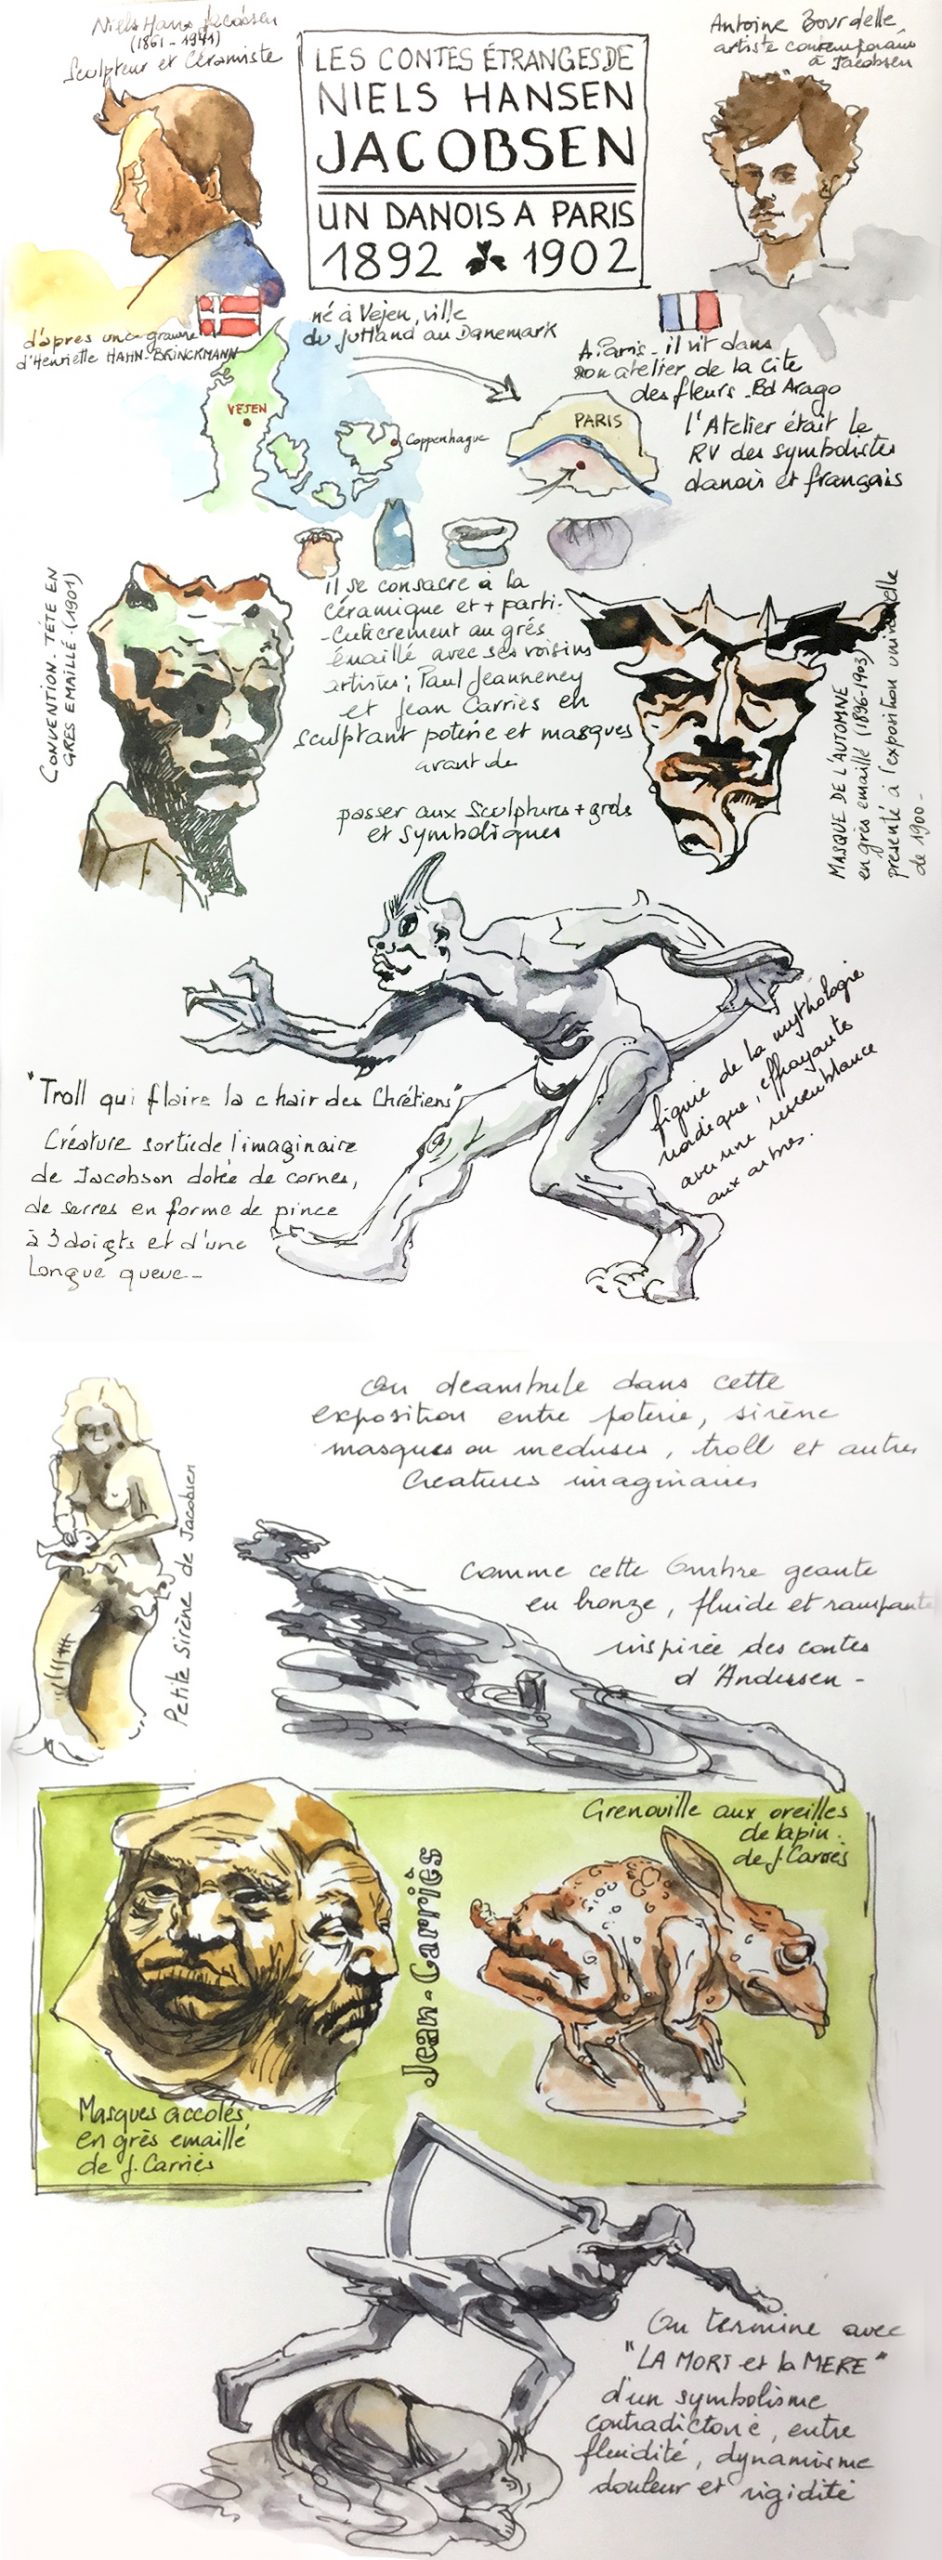 Niels Hans Jacobsen
(1861-1941)
Sculpteur et Céramiste
LES CONTES ÉTRANGES DE
NIELS HANSEN
JACOBSEN
UN DANOIS A PARIS
1892 1902
Antoine Bourdelle
artiste contemporain
à Jacobsen
d'après une gravure
d'Henriette HAHN-BRINCKMANN
né à Vejen, ville
du Jutland au Danemark
A Paris - il vit dans
son atelier de la Cité
des fleurs - Bd Arago
l'Atelier était le
RV des symbolistes
danois et français
VEJEN
Coppenhague
PARIS
CONVENTION - TÊTE EN
GRES EMAILLÉ - (1901)
il se consacre à la
céramique et + parti-
-culièrement au grés
émaillé avec ses voisins
artistes; Paul Jeanneney
et Jean Carriès en
sculptant poterie et masques
avant de
passer aux sculptures + grds
et symboliques
MASQUE DE L'AUTOMNE
en grès emaillé (1896-1903)
présenté à l'exposition universelle
de 1900 -
"Troll qui flaire la chair des Chrétiens"
Créature sortie de l'imaginaire
de Jacobson dotée de cornes,
de serres en forme de pince
à 3 doigts et d'une
longue queue -
figure de la mythologie
nordique, effrayante
avec une ressemblance
aux arbres.
On déambule dans cette
exposition entre poterie, sirène
masques ou meduses, troll et autres
Créatures imaginaires
Petite Sirène de Jacobsen
Comme cette Ombre géante
en bronze, fluide et rampante
inspirée des contes
d'Andersen -
Grenouille aux oreilles
de lapin.
de J. Carriès
Jean-Carriès
Masques accolés
en grès emaillé
de J. Carriès
On termine avec
"LA MORT et la MERE"
d'un symbolisme
contradictoire, entre
fluidité, dynamisme
douleur et rigidité